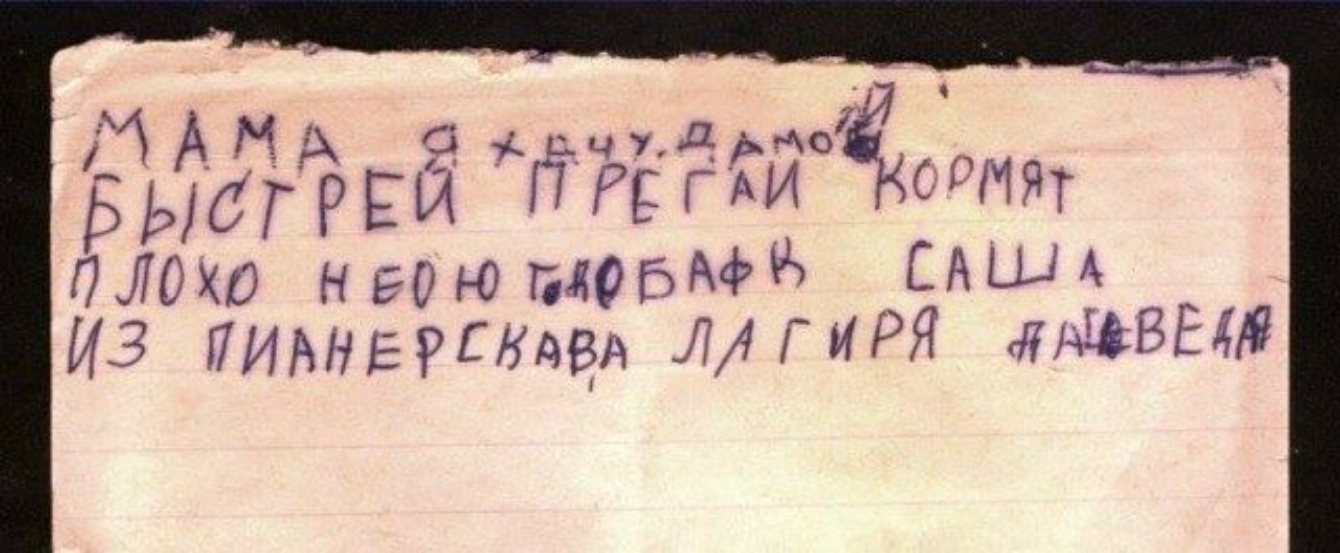 МАМА Я ХАЧУ. ДАМОЙ
БЫСТРЕЙ ПРЕГАЙ КОРМЯТ
ПЛОХО НЕОЮТ ДОБАФК САША
ИЗ ПИАНЕРСКАВА ЛАГИРЯ